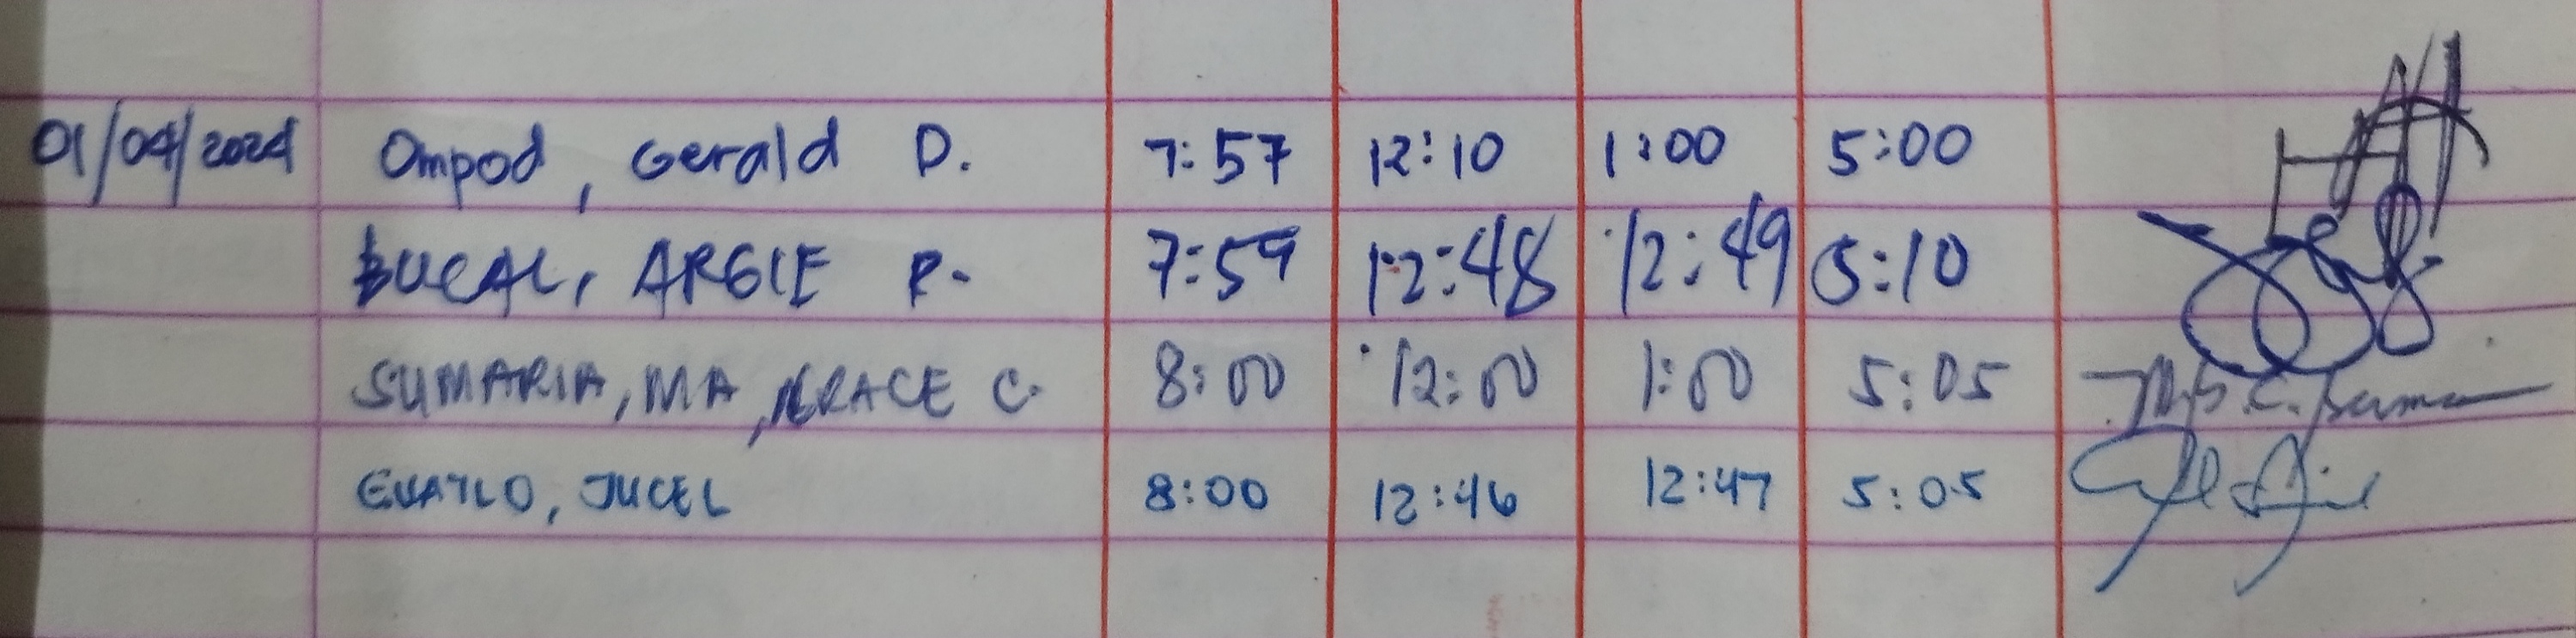 01/04/2024 Ompod, Gerald D. 7:57 12:10 1:00 5:00
BUCAL, ARGIE P. 7:59 12:48 12:49 5:10
SUMARIA, MA, GRACE C. 8:00 12:00 1:00 5:05
JUCEL 8:00 12:46 12:47 5:05